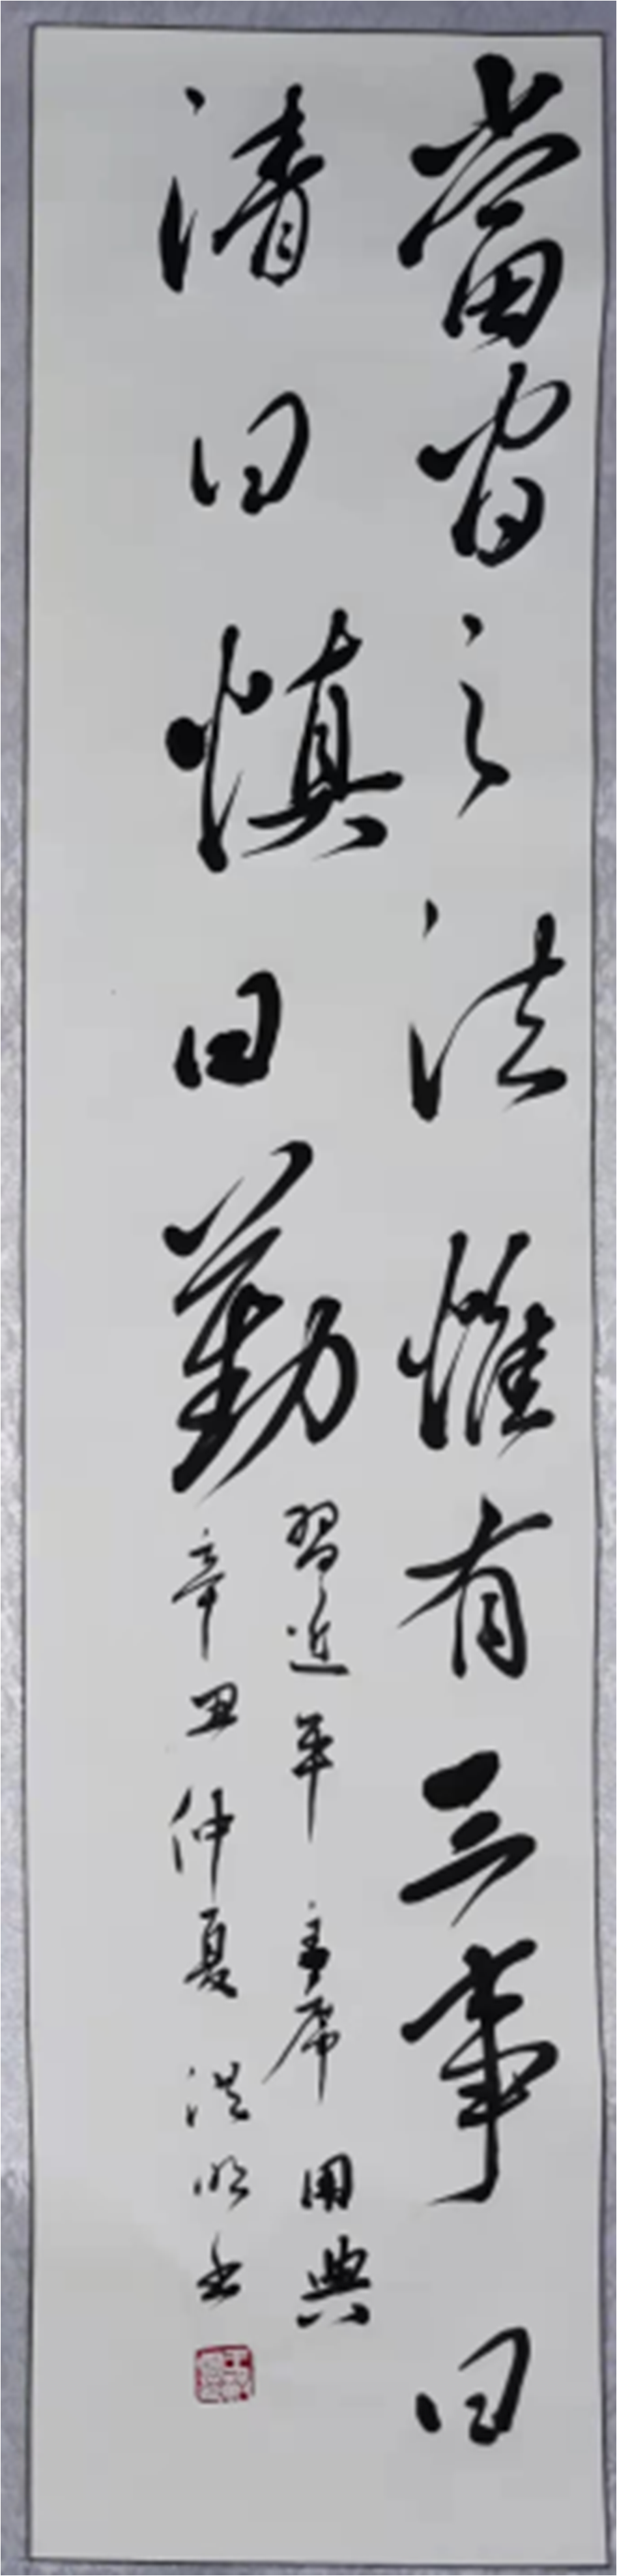 當官之法惟有三事曰
清曰慎曰勤
習近平主席用典
辛丑仲夏洪明書